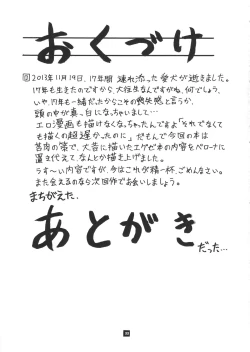 おくづけ
回2013年11月19日、17年間連れ添った愛犬が逝きました。
17年も生きたのですから、大往生なんですがね、何でしょう、
いや、17年も一緒だったからこその喪失感と言うか、
頭の中が真っ白になっちゃいまして…
エロ漫画も描けなくなっちゃったんですよ「それでなくて
も描くの超遅かったのに」だもんで今回の本は
苦肉の策で、大昔に描いたエゲピ本の内容をペローナに
置き代えて、なんとか描き上げました。
うす〜い内容ですが、今はこれが精一杯、ごめんなさい。
また会えるのなら次回作でお会いしましょう。
まちがえた、
あとがき
だった…